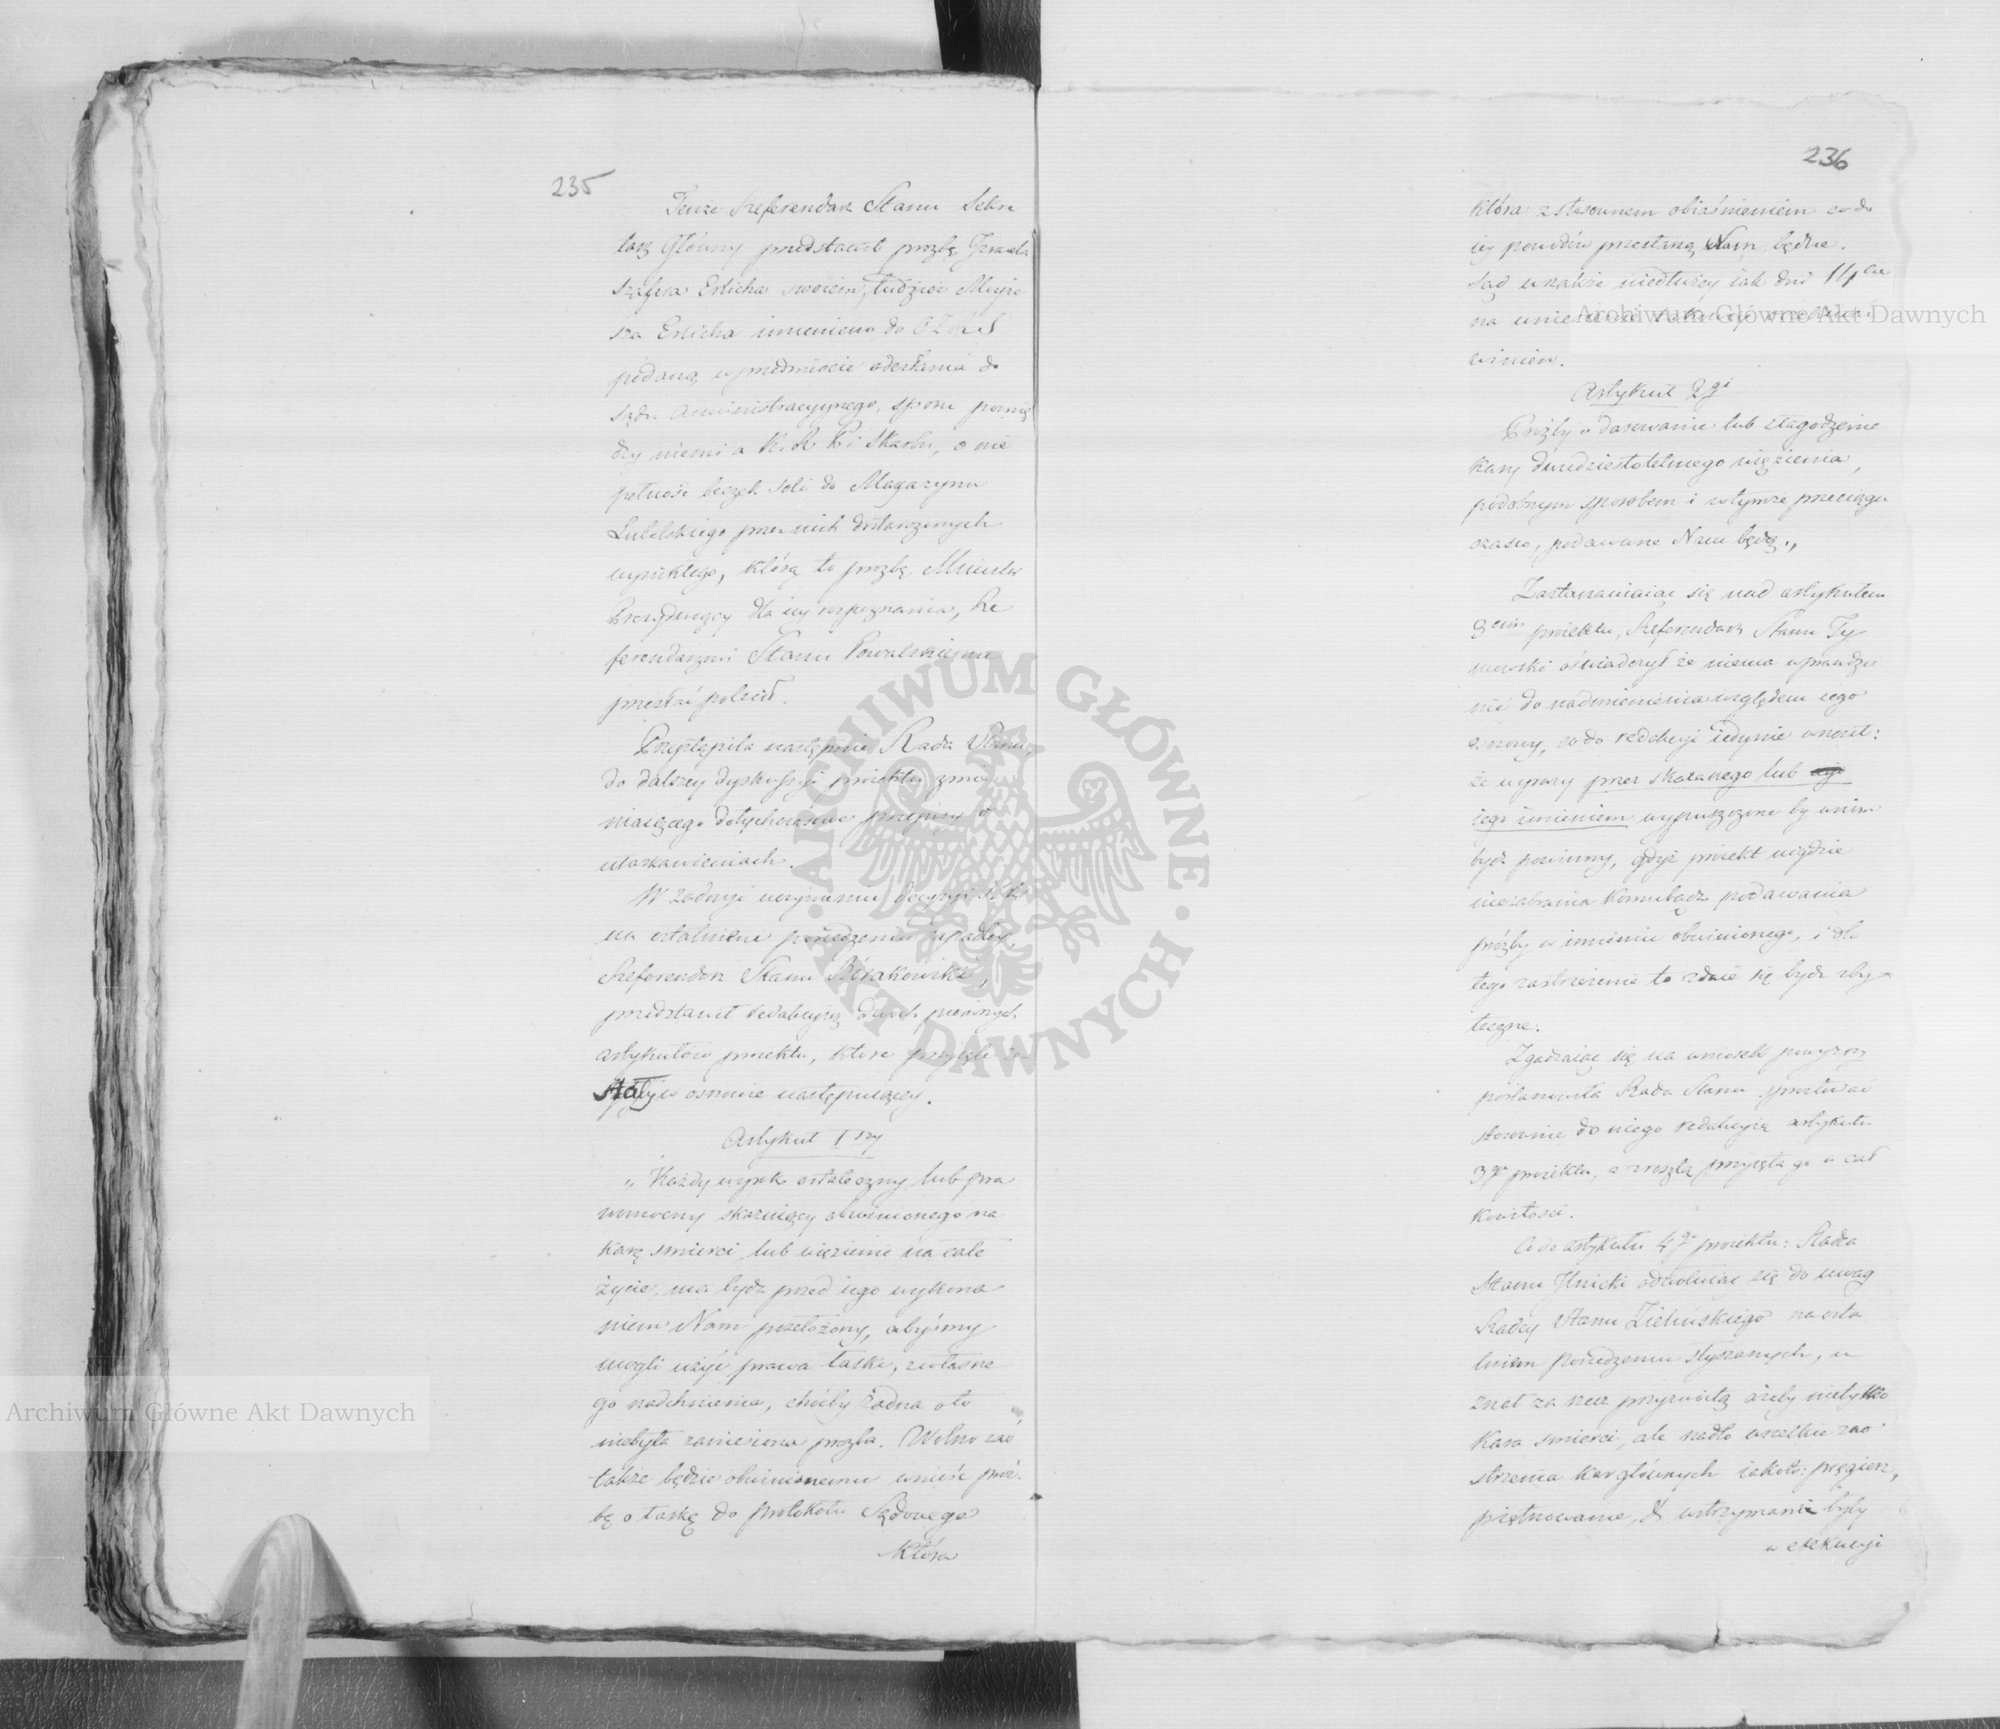 235
Tenże Referendarz Stanu Sekre
tarz Główny przedstawił prozbę Izraela
Szafira Erlicha swoiem, tudzież Moyże
sza Erlicha imieniem do
podaną, w przedmiocie odesłania do
Sądu Administracyjnego, sporu pomię
dzy niemi a K. R. P. i Skarbu, o nie
pełność beczek soli do Magazynu
Lubelskiego przez nich dostawionych
wynikłego, którą to prozbę Minister
Prezydujący dla iey rozpoznania, Re
ferendarzowi Stanu Kowalskiemu
przesłać polecił.
Przystąpiła następnie Rada Stanu
do dalszey dyskussyi proiektu zmie
niaiącego dotychczasowe przepisy o
ułaskawieniach.
W zadosyć uczynieniu decyzyi
na ostatniem posiedzeniu zapadłey,
Referendarz Stanu
przedstawił redakcyią dwóch pierwszych
artykułów proiektu, które przyięte zo
stały w osnowie następuiącey.
Artykuł 1szy
„Każdy wyrok ostateczny lub pra
womocny skazuiący obwinionego na
karę śmierci lub więzienie na całe
życie, ma bydź przed iego wykona
niem Nam przełożony, abyśmy
mogli użyć prawa łaski, z własne
go nadchnienia, choćby żadna o to
niebyła zaniesiona prozba. Wolno zaś
także będzie obwinionemu wnieść proź
bę o łaskę do protokołu Sądowego
która
236
która z stosownem obiaśnieniem co do
iey powodów przesłaną Nam będzie.
Sąd wszakże niedłużey iak dni 14cie
na wniesienie takowey
winien.
Artykuł 2gi
Prośby o darowanie lub złagodzenie
kary dwudziestoletniego więzienia,
podobnym sposobem i w tymże przeciągu
czasu, podawane Nam będą.„
Zastanawiaiąc się nad artykułem
3cim proiektu, Referendarz Stanu Ty
mowski oświadczył że niema wprawdzie
nic do nadmienienia względem iego
osnowy, co do redakcyi iedynie wnosił:
że wyrazy przez skazanego lub
iego imieniem wypuszczone by w nim
bydź powinny, gdyż proiekt nigdzie
niezabrania komubądź podawania
prośby w imieniu obwinionego, i dla
tego zastrzeżenie to zdaie się bydź zby
teczne.
Zgadzaiąc się na wniosek powyższy
postanowiła Rada Stanu sprostować
stosownie do niego redakcyią artykułu
3go proiektu, a zresztą przyięła go w cał
kowitości.
Co do artykułu 4go proiektu: Radca
Stanu odwołuiąc się do uwag
Radcy Stanu Zielińskiego na osta
tniem posiedzeniu słyszanych, u
znał za rzecz przyzwoitą ażeby nietylko
kara śmierci, ale nadto wszelkie zao
strzenia kar głównych iakoto: pręgierz,
piętnowanie, & wstrzymane były
w exekucyi
Archiwum Główne Akt Dawnych
Archiwum Główne Akt Dawnych
· ARCHIWUM GŁÓWNE · AKT DAWNYCH